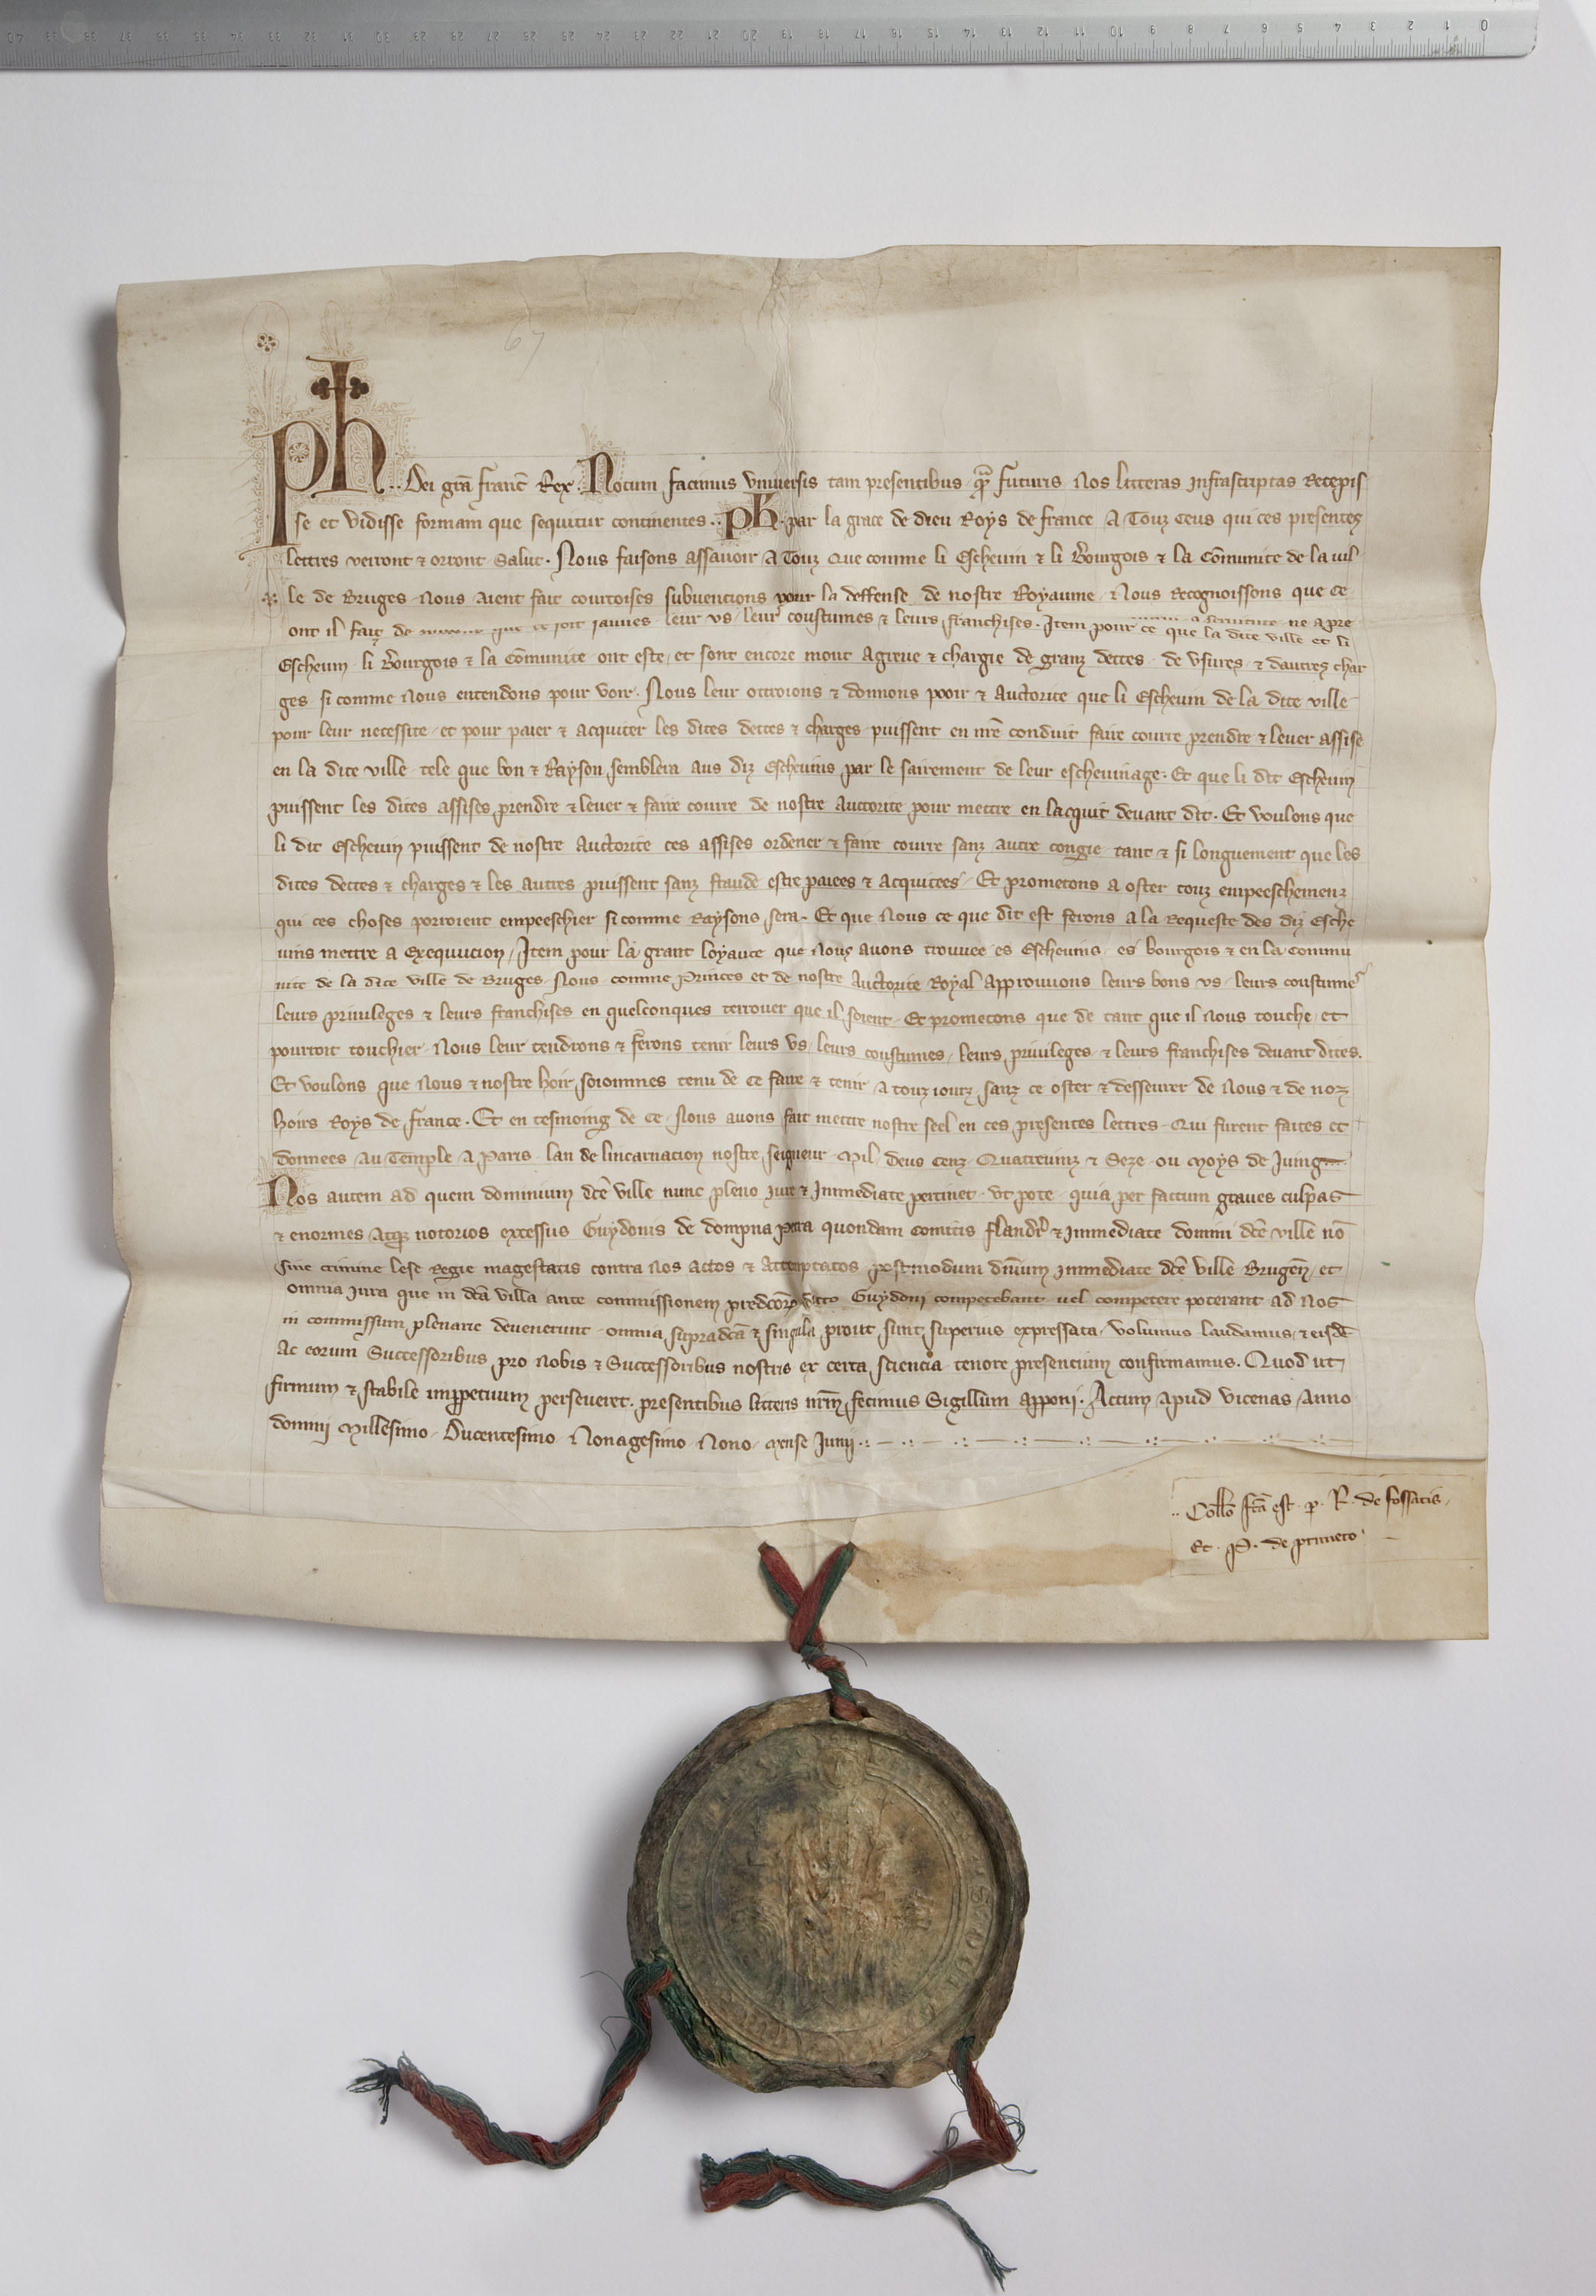 67
Ph .. Dei gr̄a franc̄ Rex. Notum facimus vniuersis tam presentibus q̄m futuris Nos litteras infrascriptas Recepis
se et vidisse formam que sequitur continentes .. Ph. par la grace de dieu Roys de france A Touz Ceus qui ces presentes
lettres verront & orront Salut. Nous faisons assauoir A Touz Que comme li Escheuin & li Bourgois & la Cōmunite de la vil
le de Bruges Nous Aient fait courtoises subuencions pour la deffense de nostre Royaume Nous Recognoissons que ce
ont il fait de leur vs leurs coustumes & leurs franchises. Item pour ce que la dite ville et li
Escheuin li Bourgois & la Cōmunite ont este et sont encore mout Agreue & chargie de granz dettes de vsures & dautres char
ges si comme Nous entendons pour voir. Nous leur ottroions & donnons pooir & Auctorite que li Escheuin de la dite ville
pour leur necessite et pour paier & acquiter les dites dettes & charges puissent en nr̄e conduit faire courre prendre & leuer assise
en la dite ville tele que bon & Rayson semblera aus diz Escheuins par le sairement de leur escheuinage. Et que li dit Escheuin
puissent les dites assises prendre & leuer & faire courre de nostre Auctorite pour mettre en lacquit deuant dit. Et voulons que
li dit Escheuin puissent de nostre Auctorite ces assises ordener & faire courre sanz autre congie tant & si longuement que les
dites dettes & charges & les autres puissent sanz fraude estre paiees & acquitees Et prometons a oster touz empeeschemenz
qui ces choses porroient empeeschier si comme Raysons sera. Et que Nous ce que dit est ferons a la Requeste des diz Esche
uins mettre a Exequucion Item pour la grant loyaute que Nous auons trouuee es Escheuins es bourgois & en la Commu
nite de la dite ville de Bruges Nous comme Princes et de nostre Auctorite Royal Approuuons leurs bons vs leurs coustumes
leurs priuileges & leurs franchises en quelconques terrouer que il soient Et prometons que de tant que il Nous touche et
pourroit touchier Nous leur tendrons & ferons tenir leurs vs leurs coustumes leurs priuileges & leurs franchises deuant dites.
Et voulons que Nous & nostre hoir soiommes tenu de ce faire & tenir A touz iourz sanz ce oster & desseurer de Nous & de noz
hoirs Roys de france. Et en tesmoing de ce Nous auons fait mettre nostre seel en ces presentes lettres Qui furent faites et
donnees Au Temple A Paris lan de lincarnacion nostre seigneur Mil deus Cenz Quatreuinz & Seze ou Moys de Juing
Nos autem ad quem dominium dc̄e ville nunc pleno iure & Immediate pertinet vt pote quia per factum graues culpas
& enormes Atq; notorios excessus Guydonis de dompna petra quondam Comitis flandr̄ & immediate domini dc̄e ville nō
sine crimine lese Regie magestatis contra Nos Actos & Attemptatos postmodum dn̄ium immediate dc̄e ville Brugen̄ et
omnia Jura que in dc̄a villa ante commissionem predcōrꝫ dicto Guydoni competebant uel competere poterant Ad Nos
in commissum plenarie deuenerunt omnia supradcā & singula prout sunt superius expressata volumus laudamus & eisdē
Ac eorum Successoribus pro Nobis & Successoribus nostris ex certa sciencia tenore presencium confirmamus. Quod ut
firmum & stabile imppetuum perseueret. presentibus litteris nr̄m fecimus Sigillum Apponi. Actum Apud Vicenas Anno
domini Millesimo Ducentesimo Nonagesimo Nono mense Junij
.. Collō fcā est p. R. de fossatis
Et P. de pruneto